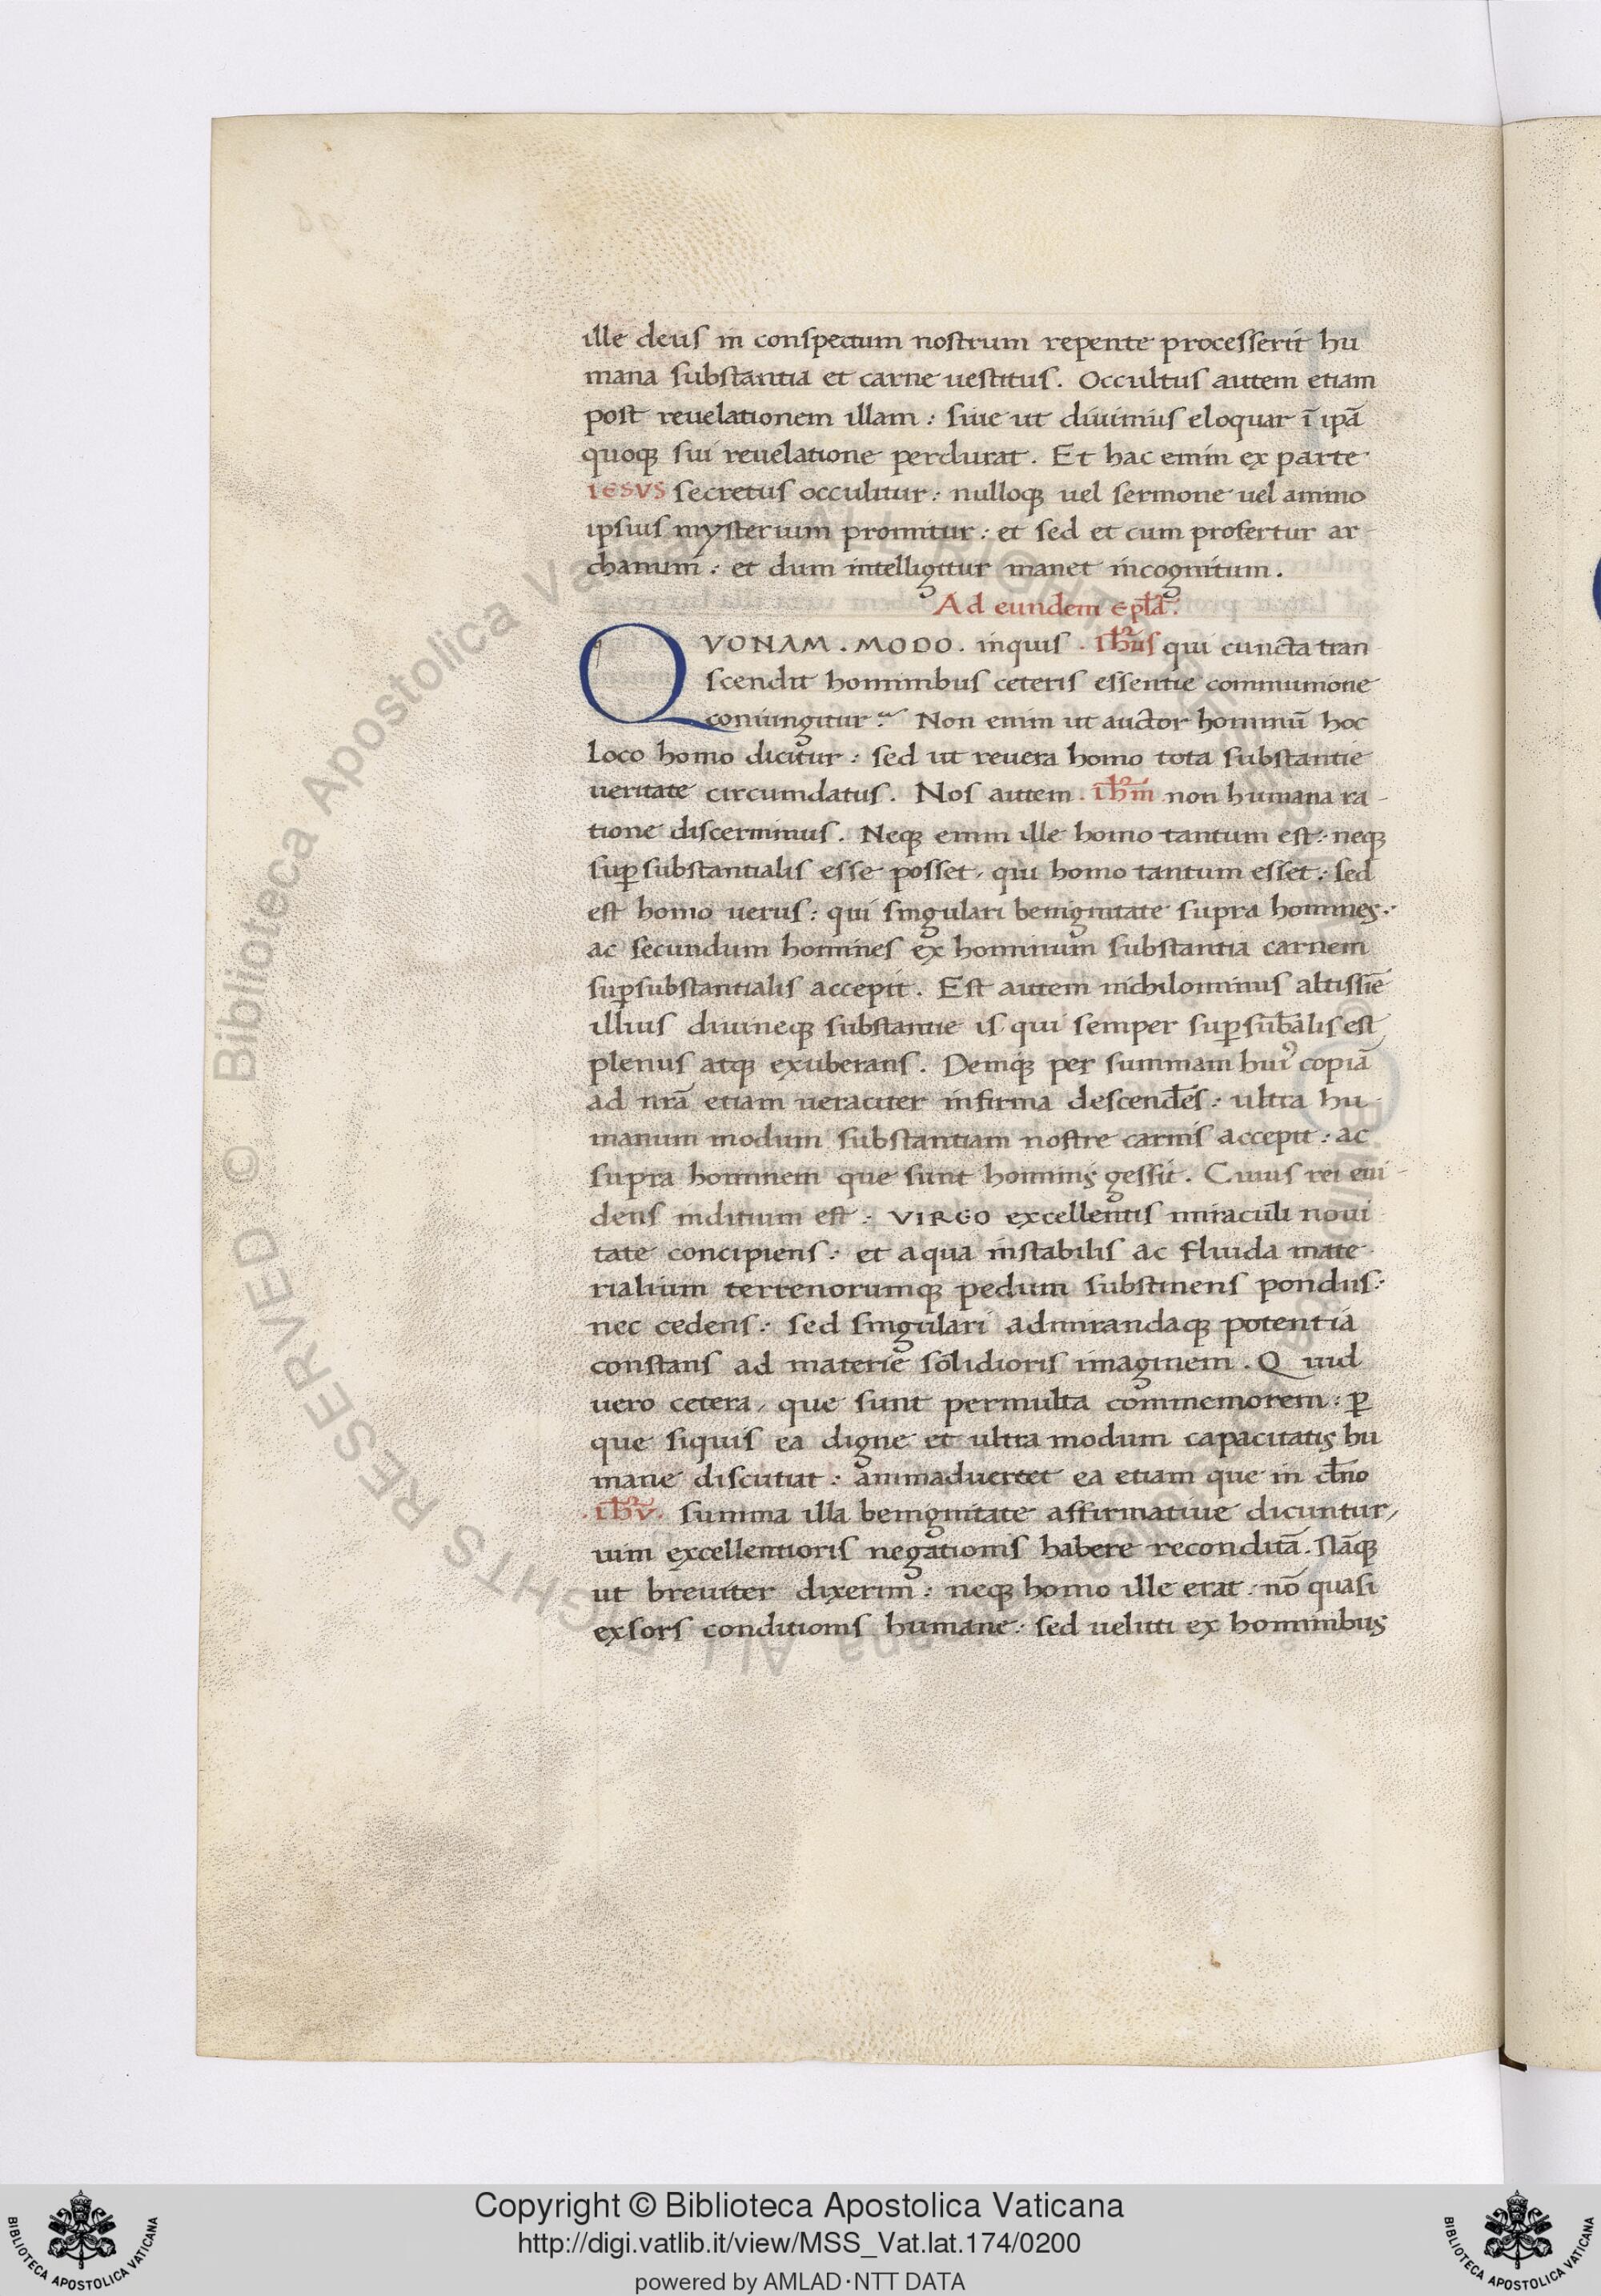 ille deus in conspectum nostrum repente processerit hu
mana substantia et carne uestitus. Occultus autem etiam
post reuelationem illam: siue ut diuinius eloquar ī ipā
quoq; sui reuelatione perdurat. Et hac enim ex parte
IESVS secretus occulitur: nulloq; uel sermone uel animo
ipsius mysterium promitur: et sed et cum profertur ar-
chanum: et dum intelligitur manet incognitum.
Ad eundem epl̄a:
QVONAM. MODO. inquis. Ihu̅s qui cuncta tran
scendit hominibus ceteris essentie communione
coniungitur? Non enim ut auctor hominū hoc
loco homo dicitur: sed ut reuera homo tota substantie
ueritate circumdatus. Nos autem. ihm̄. non humana ra-
tione discernimus. Neq; enim ille homo tantum est: neq;
sup̱substantialis esse posset, qui homo tantum esset: sed
est homo uerus: qui singulari benignitate supra homines:
ac secundum homines ex hominum substantia carnem
sup̱substantialis accepit. Est autem nichilominus altissīe
illius diuineq; substantie is qui semper sup̱sub̄alis est
plenus atq; exuberans. Deniq; per summam huiꝰ copiā
ad nrā etiam ueraciter infirma descendēs: ultra hu
manum modum substantiam nostre carnis accepit: ac
supra hominem que sunt hominis gessit. Cuius rei eui-
dens inditium est: VIRGO excellentis miraculi noui
tate concipiens: et aqua instabilis ac fluida mate
rialium terrenorumq; pedum substinens pondus:
nec cedens: sed singulari admirandaq; potentia
constans ad materie solidioris imaginem. Quid
uero cetera, que sunt permulta commemorem: p̱
que siquis ea digne et ultra modum capacitatis hu
mane discutiat: animaduertet ea etiam que in dn̄o
.ihv̄. summa illa benignitate affirmatiue dicuntur,
uim excellentioris negationis habere reconditā. Nāq;
ut breuiter dixerim: neq; homo ille erat: nō quasi
exsors conditionis humane: sed ueluti ex hominibus
© Biblioteca Apostolica Vaticana ALL RIGHTS RESERVED
Copyright © Biblioteca Apostolica Vaticana
http://digi.vatlib.it/view/MSS_Vat.lat.174/0200
powered by AMLAD·NTT DATA
BIBLIOTECA APOSTOLICA VATICANA
BIBLIOTECA APOSTOLICA VATICANA